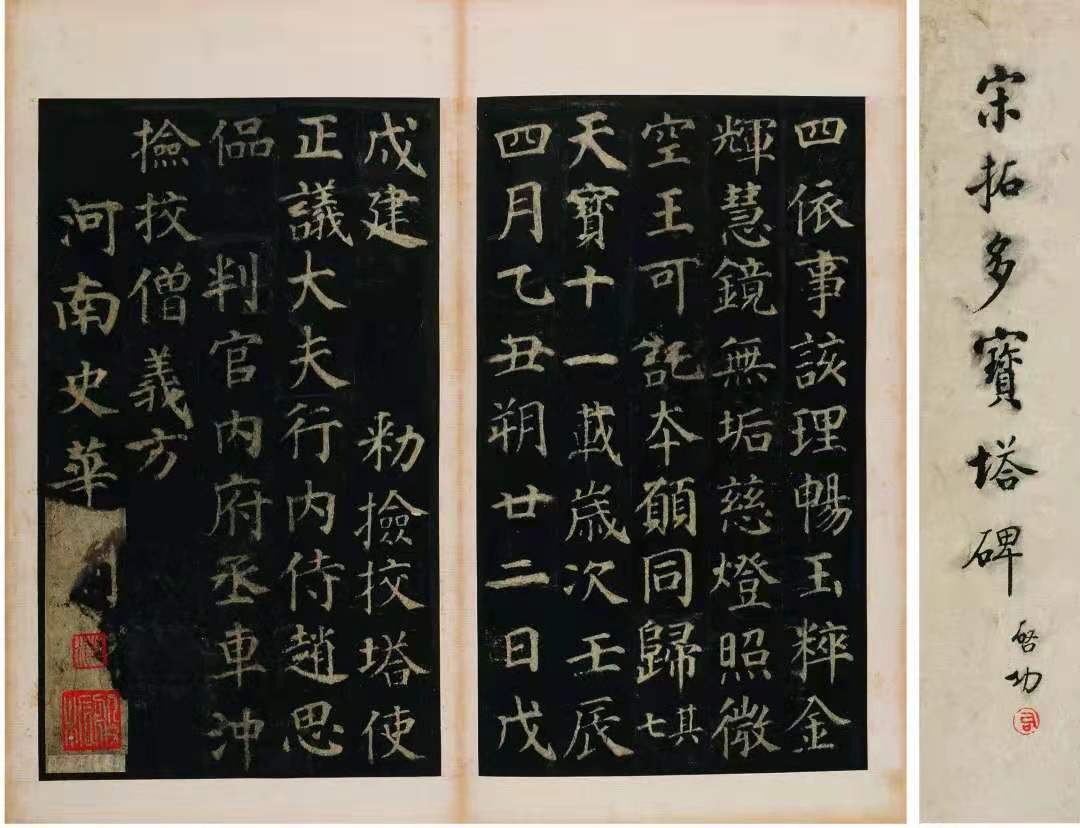 宋拓多寶塔碑
啓功
四依事該理暢玉粹金
輝慧鏡無垢慈燈照微
空王可託夲願同歸其七
天寶十一載歲次壬辰
四月乙丑朔廿二日戊
戌建 勑撿挍塔使
正議大夫行内侍趙思
偘 判官内府丞車沖
撿挍僧義方
河南史華